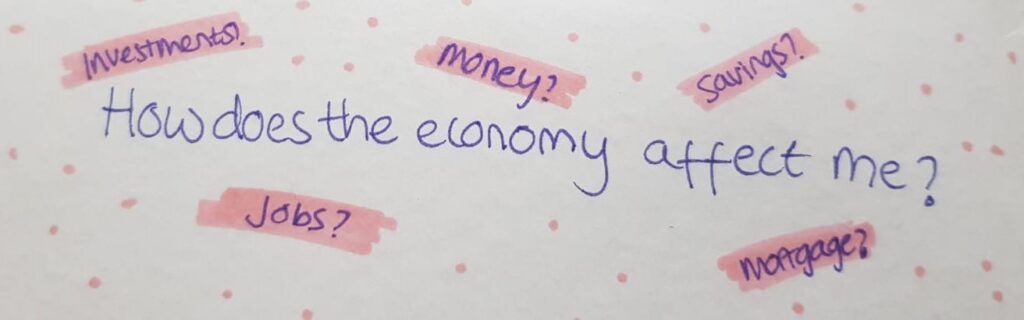 Investments?
Money?
Savings?
How does the economy affect me?
Jobs?
Mortgage?